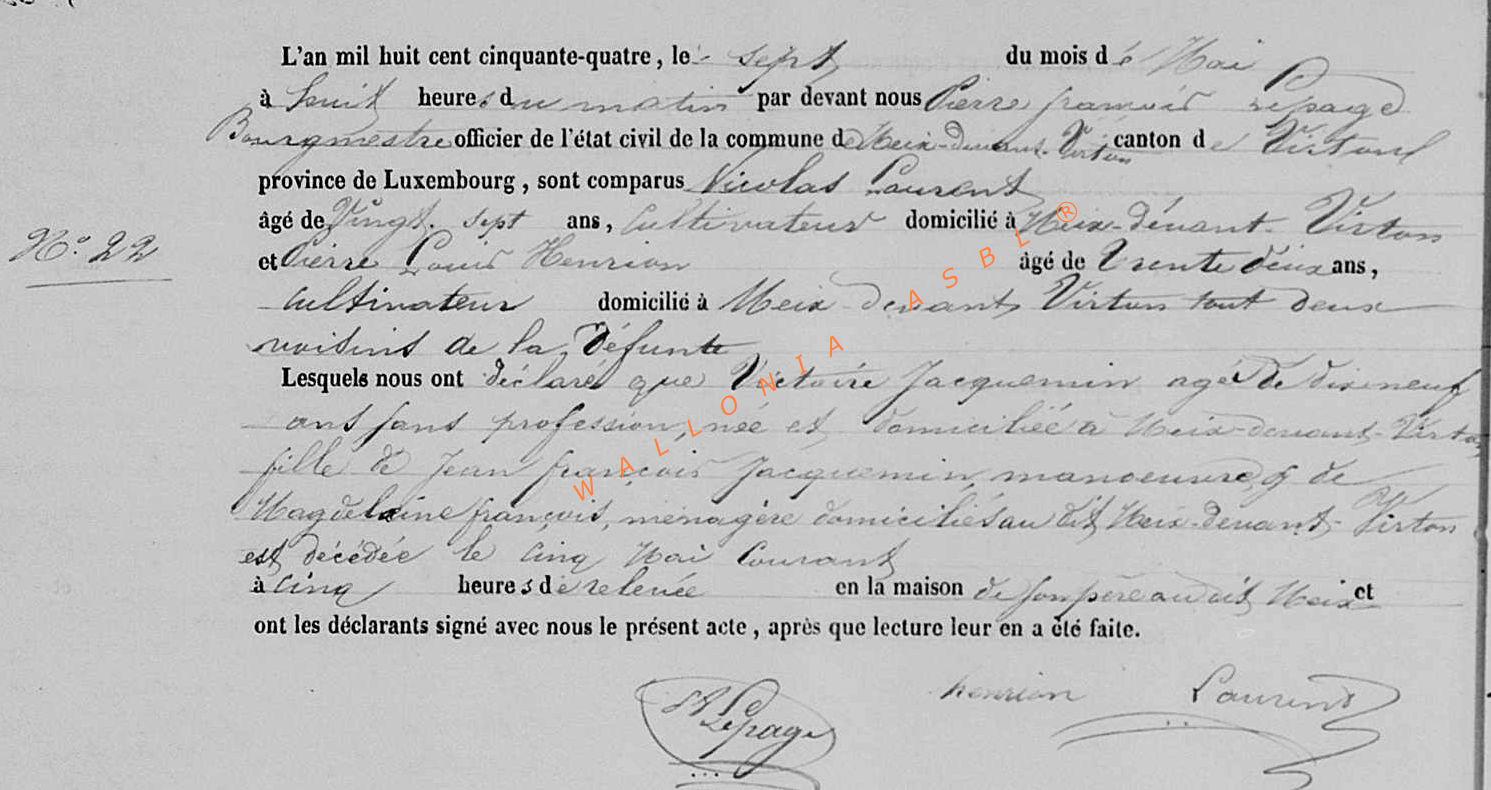 L'an mil huit cent cinquante-quatre, le sept du mois dé Mai
à huit heures du matin par devant nous Pierre françois Lepage
Bourgmestre officier de l'état civil de la commune de Meix-devant-Virton canton de Virton
province de Luxembourg, sont comparus Nicolas Laurent
âgé de Vingt-sept ans, Cultivateur domicilié à Meix-dévant-Virton
N° 22
et Pierre Louis Henrion âgé de Trente deux ans,
Cultivateur domicilié à Meix-devant Virton tout deux
voisins de la Défunte
Lesquels nous ont déclaré que Victoire Jacquemin agé de dixneuf
ans sans profession, née et domiciliée à Meix-devant-Virton
fille de Jean françois Jacquemin, manoeuvre, & de
Magdeleine françois, ménagère domiciliés au dit Meix-devant-Virton
est décédée le cinq Mai Courant
à cinq heures de relevée en la maison de son père au dit Meix et
ont les déclarants signé avec nous le présent acte, après que lecture leur en a été faite.
henrion Laurent
Lepage
WALLONIA ASBL ®